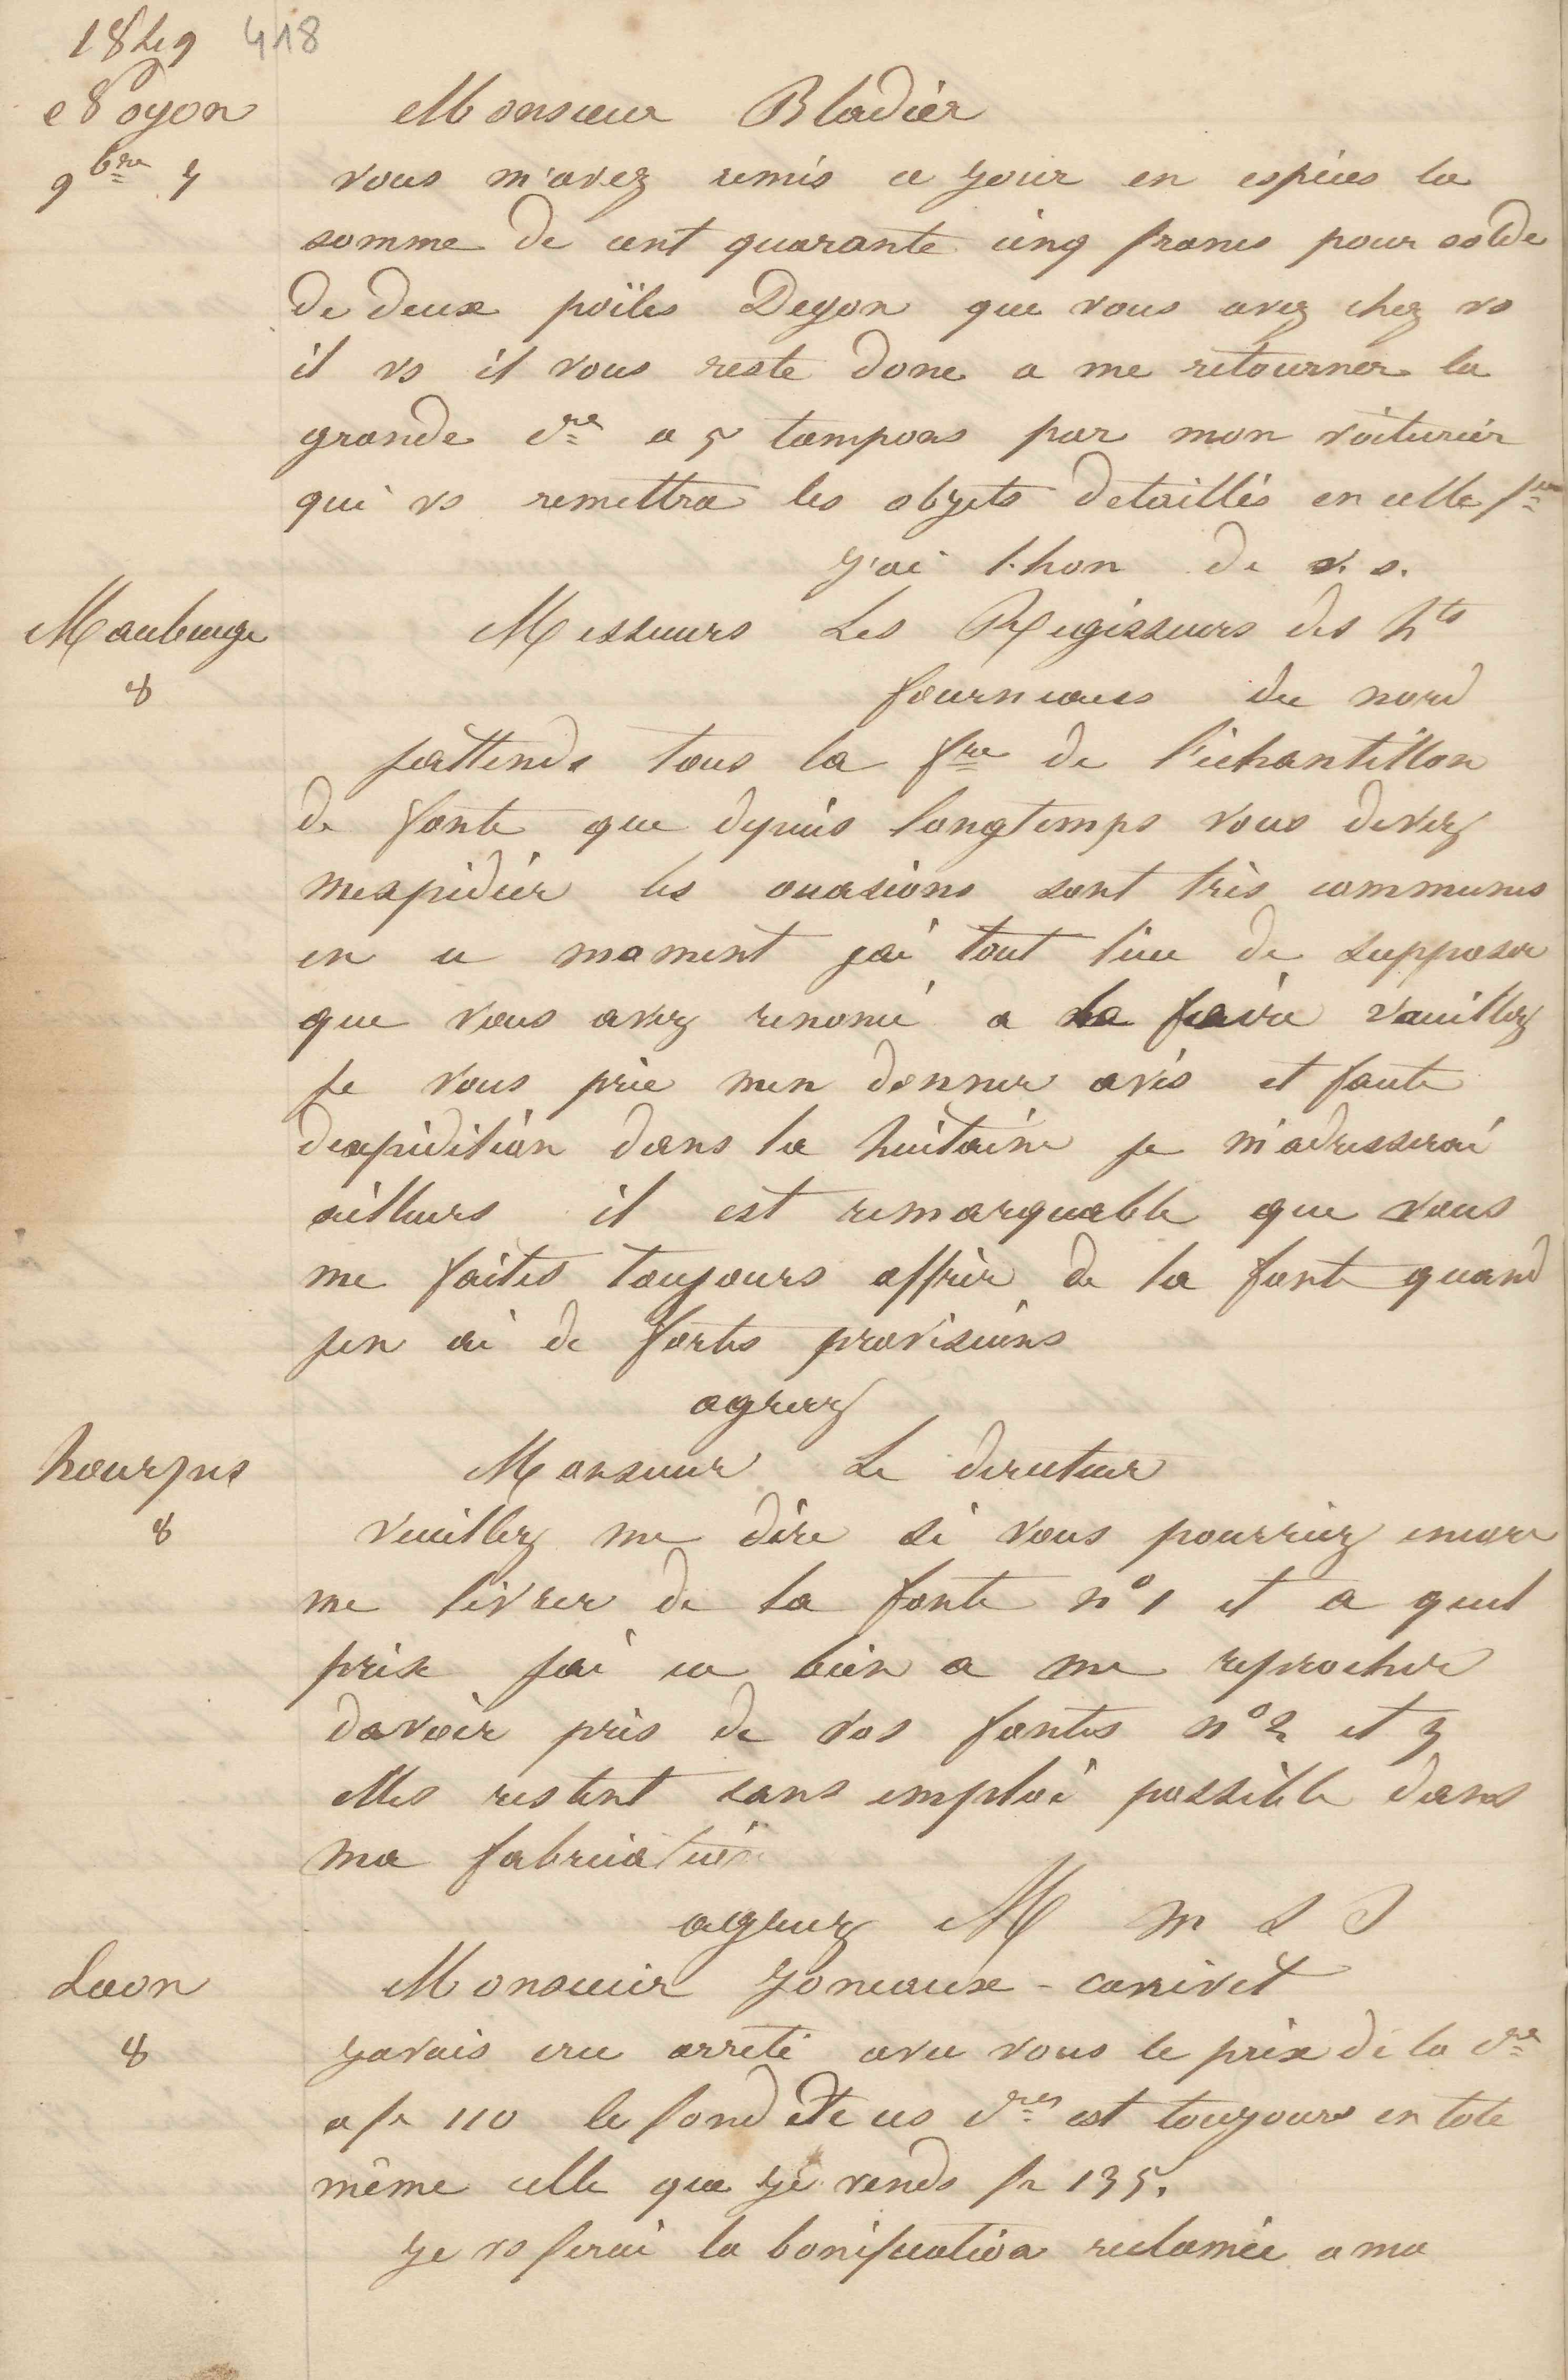 1849 418
Noyon
9bre 7
Monsieur Bladier
vous m'avez remis ce jour en espèces la
somme de cent quarante cinq francs pour solde
de deux poïles Deyon que vous avez chez vs
il vs il vous reste donc a me retourner la
grande Cre a 5 tampons par mon voiturier
qui vs remettra les objets detaillés en cette fre
j'ai l.hon de v. s.
Maubeuge
8
Messieurs Les Regisseurs des hts
fourneaux du nord
jattends tous la fre de l'echantillon
de fonte que depuis longtemps vous devez
mexpedier les occasions sont très communes
en ce moment jai tout lieu de supposer
que vous avez renoncé a la faire veuillez
je vous prie men donner avis et faute
dexpedition dans la huitaine je m'adresserai
ailleurs il est remarquable que vous
me faites toujours offrir de la fonte quand
jen ai de fortes provisions
agreez
hourpes
8
Monsieur Le directeur
veuillez me dire si vous pourriez encore
me livrer de la fonte n° 1 et a quel
prix jai eu bien a me reprocher
davoir pris de vos fontes n° 2 et 3
elles restent sans emploi possible dans
ma fabrication
agreez M m S S
Laon
8
Monsieur Joneaux - canivet
javais cru arreté avec vous le prix de la Cre
a fr 110 le fond de ces Cres est toujours en tole
même celle que je vends fr 135.
je vs ferai la bonification reclamée a ma